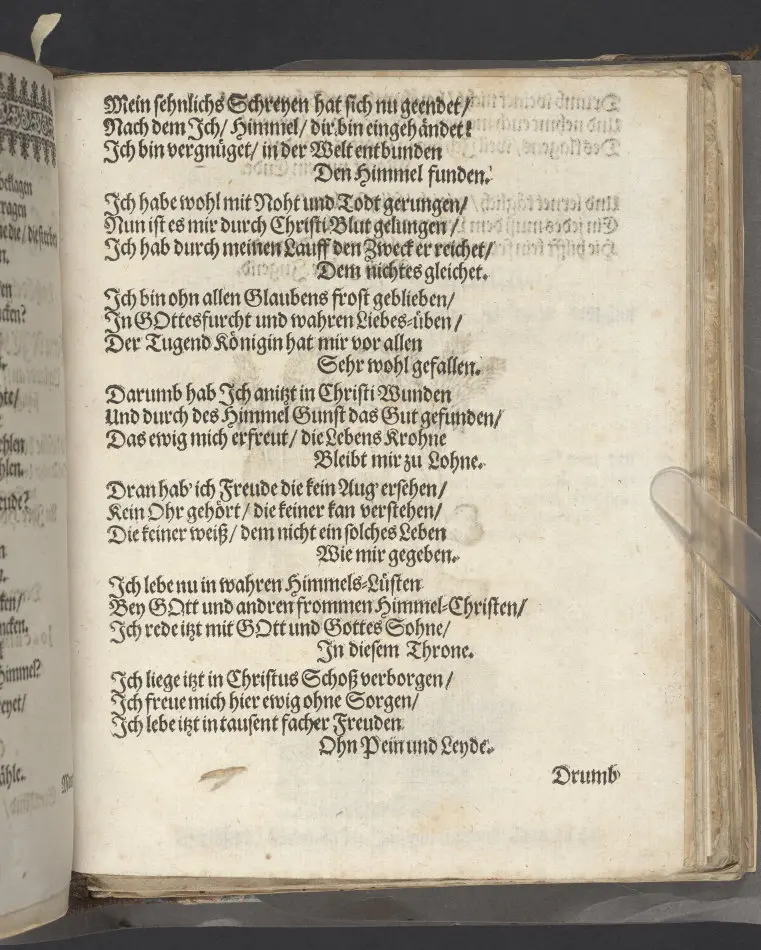 beklagen
ragen
Mein sehnlichs Schreyen hat sich nu geendet/
Nach dem Ich/ Himmel/ dir bin eingehändet!
Ich bin vergnüget/ in der Welt entbunden
Den Himmel funden.
Ich habe wohl mit Noht und Todt gerungen/
Nun ist es mir durch Christi Blut gelungen/
Ich hab durch meinen Lauff den Zweck erreichet/
Dem nichtes gleichet.
Ich bin ohn allen Glaubens frost geblieben/
In GOttesfurcht und wahren Liebes-üben/
Der Tugend Königin hat mir vor allen
Sehr wohl gefallen.
Darumb hab Ich anitzt in Christi Wunden
Und durch des Himmel Gunst das Gut gefunden/
Das ewig mich erfreut/ die Lebens Krohne
Bleibt mir zu Lohne.
Dran hab' ich Freude die kein Aug' ersehen/
Kein Ohr gehört/ die keiner kan verstehen/
Die keiner weiß/ dem nicht ein solches Leben
Wie mir gegeben.
Ich lebe nu in wahren Himmels-Lüsten
Bey GOtt und andren frommen Himmel-Christen/
Ich rede itzt mit GOtt und Gottes Sohne/
In diesem Throne.
Ich liege itzt in Christus Schoß verborgen/
Ich freue mich hier ewig ohne Sorgen/
Ich lebe itzt in tausent facher Freuden
Ohn Pein und Leyde.
Drumb